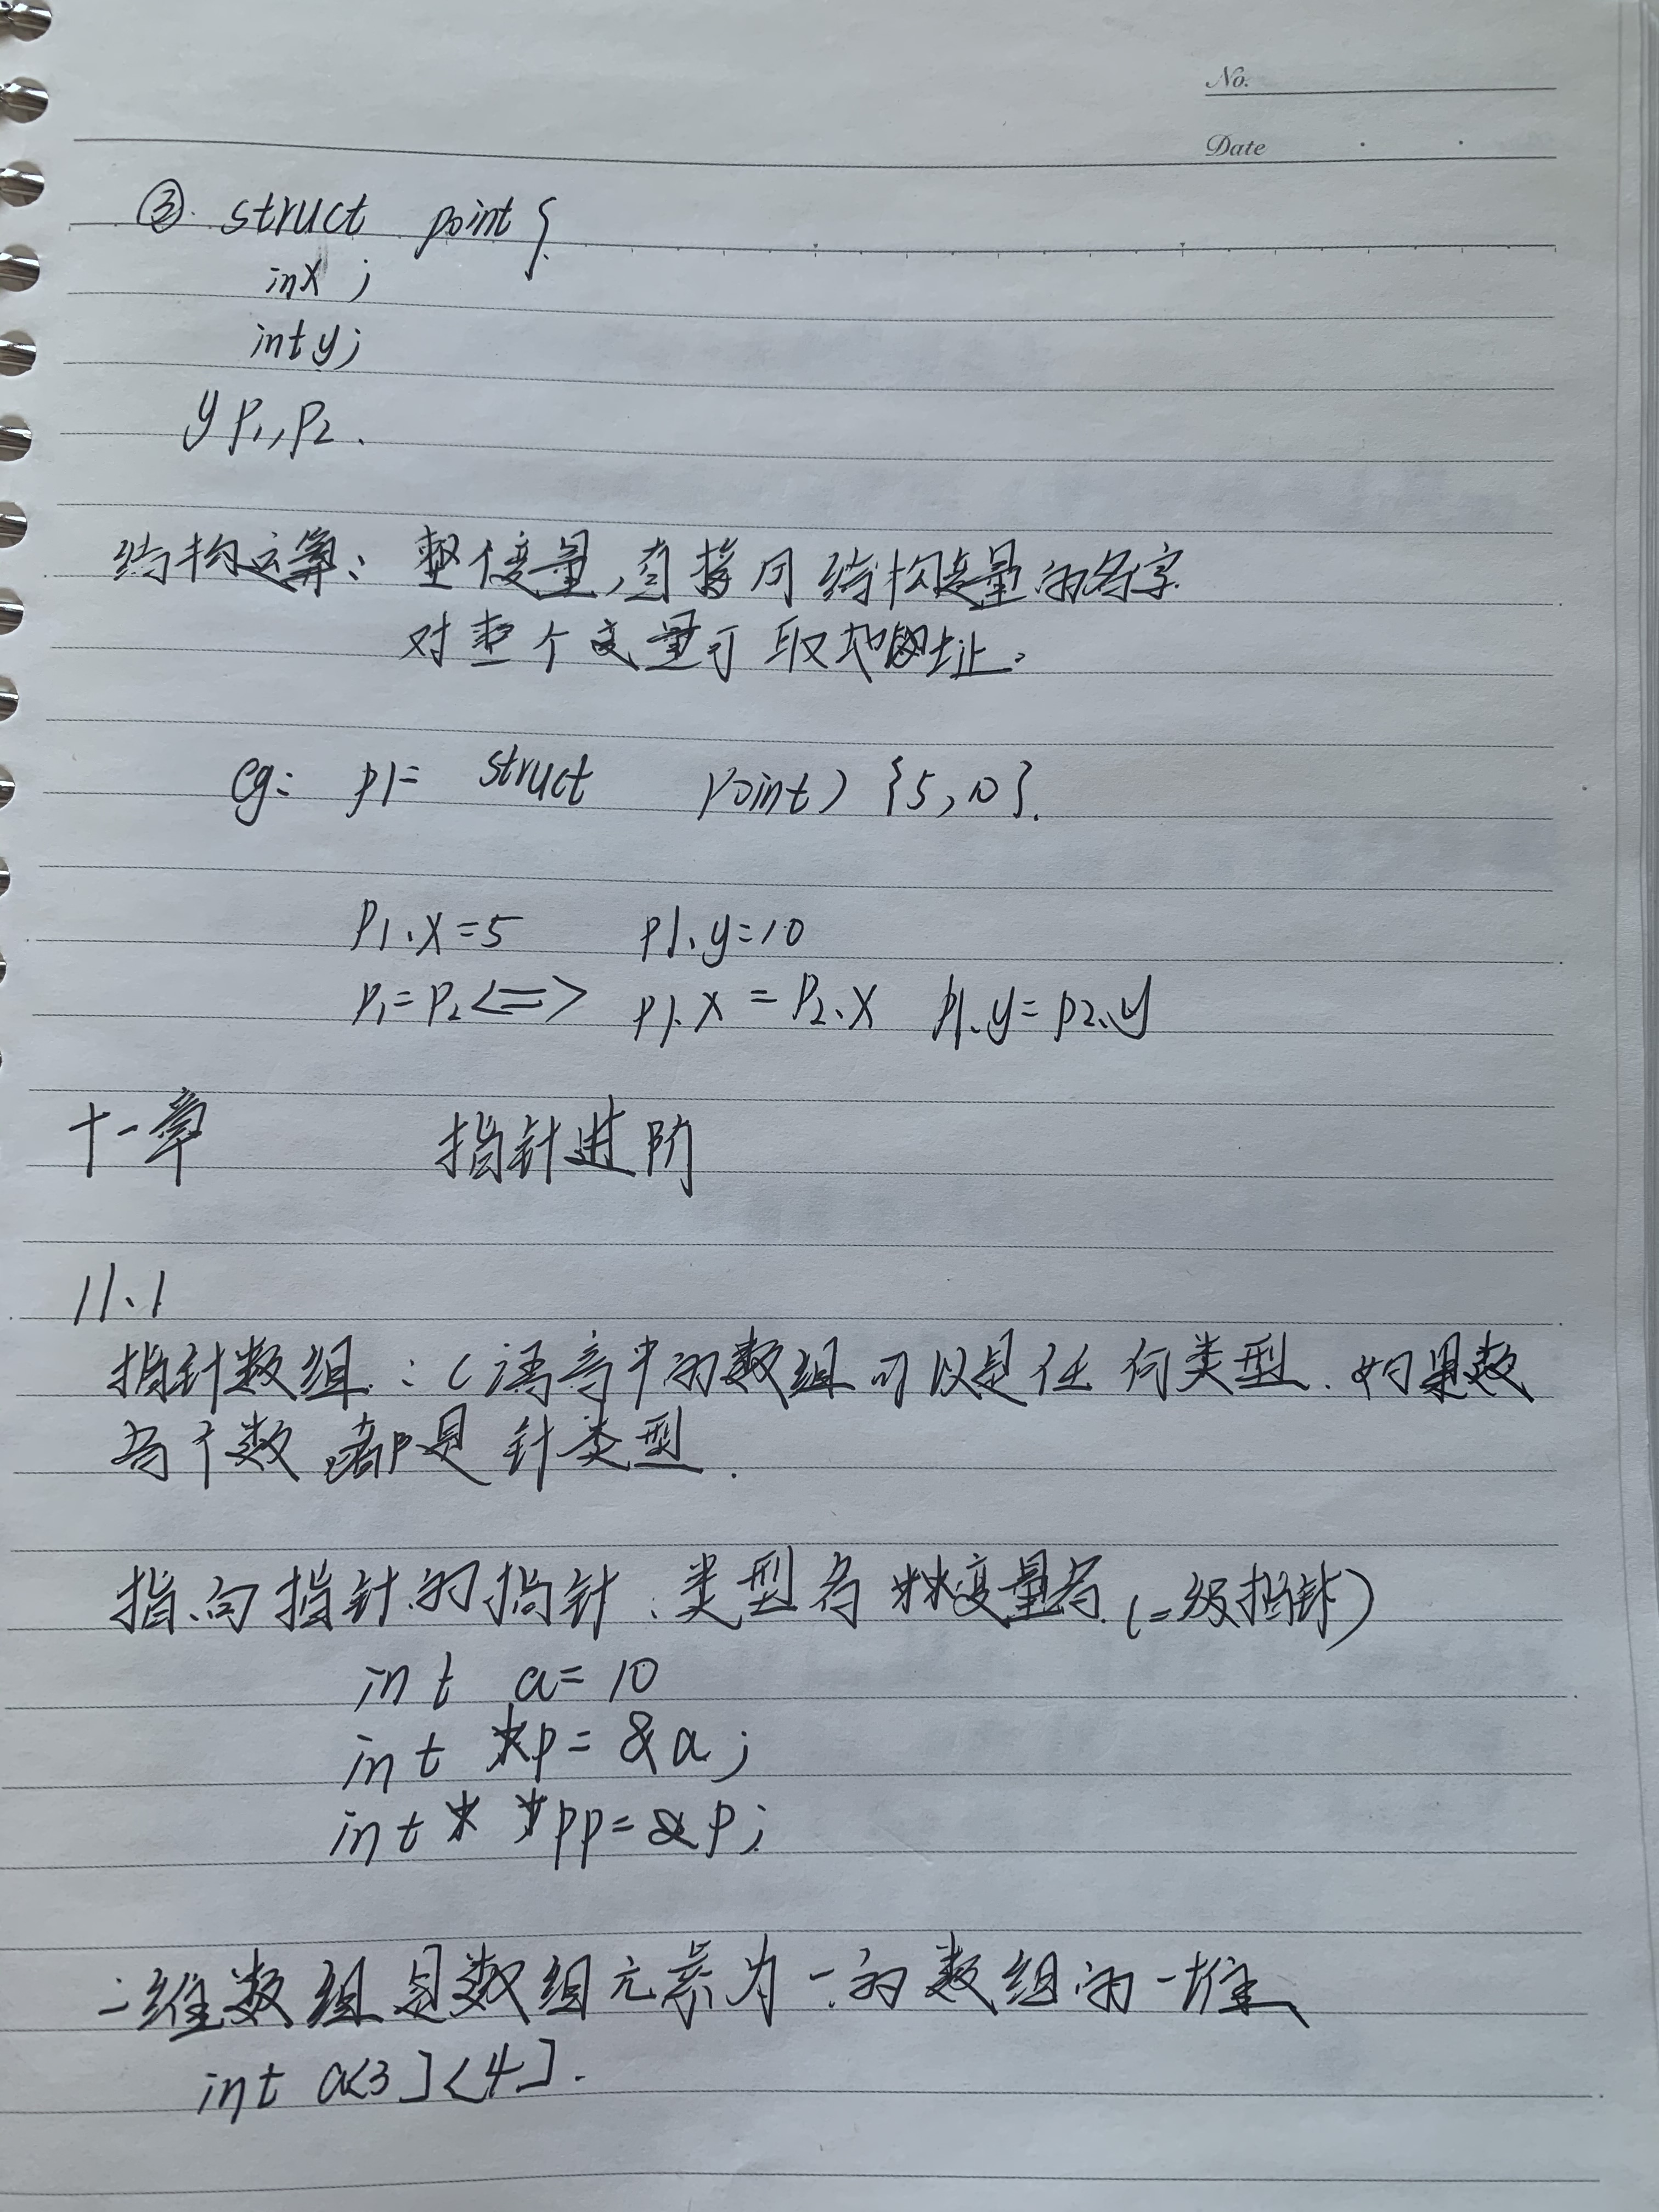 No.
Date
③. struct point {
inx ;
int y;
y p1,p2.
结构运算: 整个变量,直接用结构变量的名字.
对整个变量可取地址。
eg: p1= struct point) {5,10}.
P1.x=5 p1.y=10
P1=P2<=> p1.x = P2.x p1.y=p2.y
十一章 指针进阶
11.1
指针数组:C语言中的数组可以是任何类型.如果数
各个数都是针类型.
指向指针的指针.类型名 **变量名.(二级指针)
int a=10
int *p= &a;
int* *pp=&p;
二维数组是数组元素为一的数组的一维
int a<3]<4].